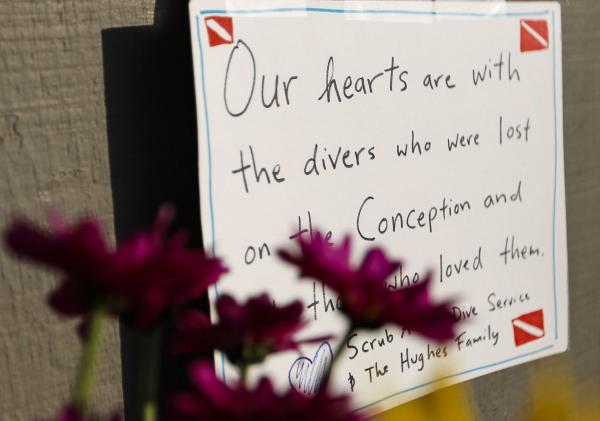 Our hearts are with
the divers who were lost
on the Conception and
who loved them.
Scrub Dive Service
& The Hughes Family